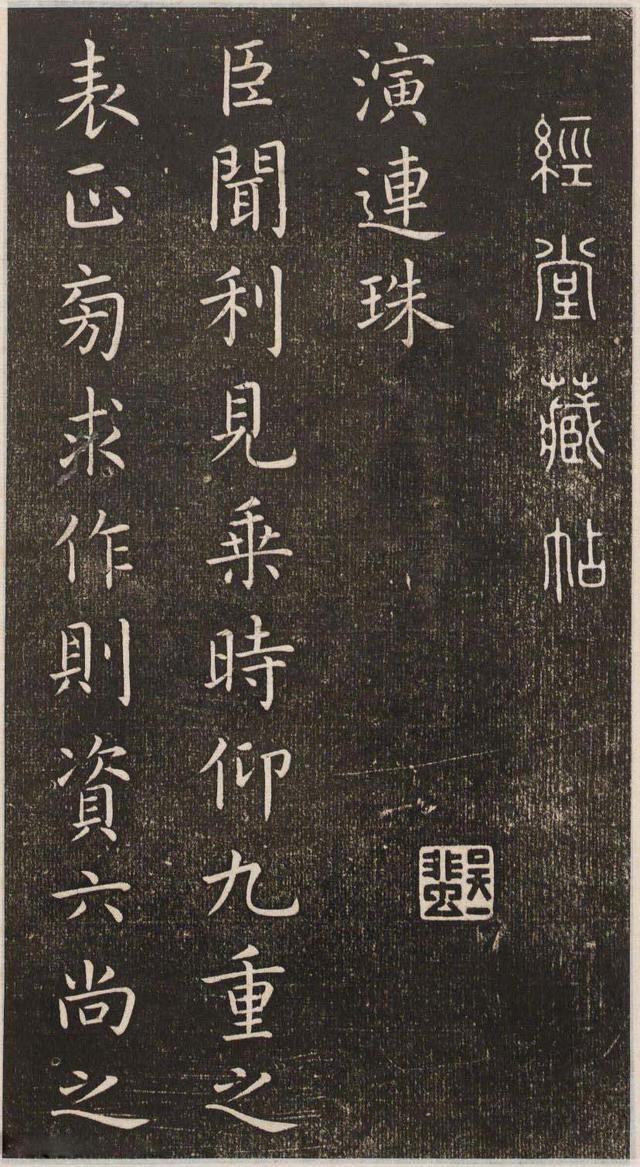 一經堂藏帖
演連珠
臣聞利見乘時仰九重之
表正旁求作則資六尚之